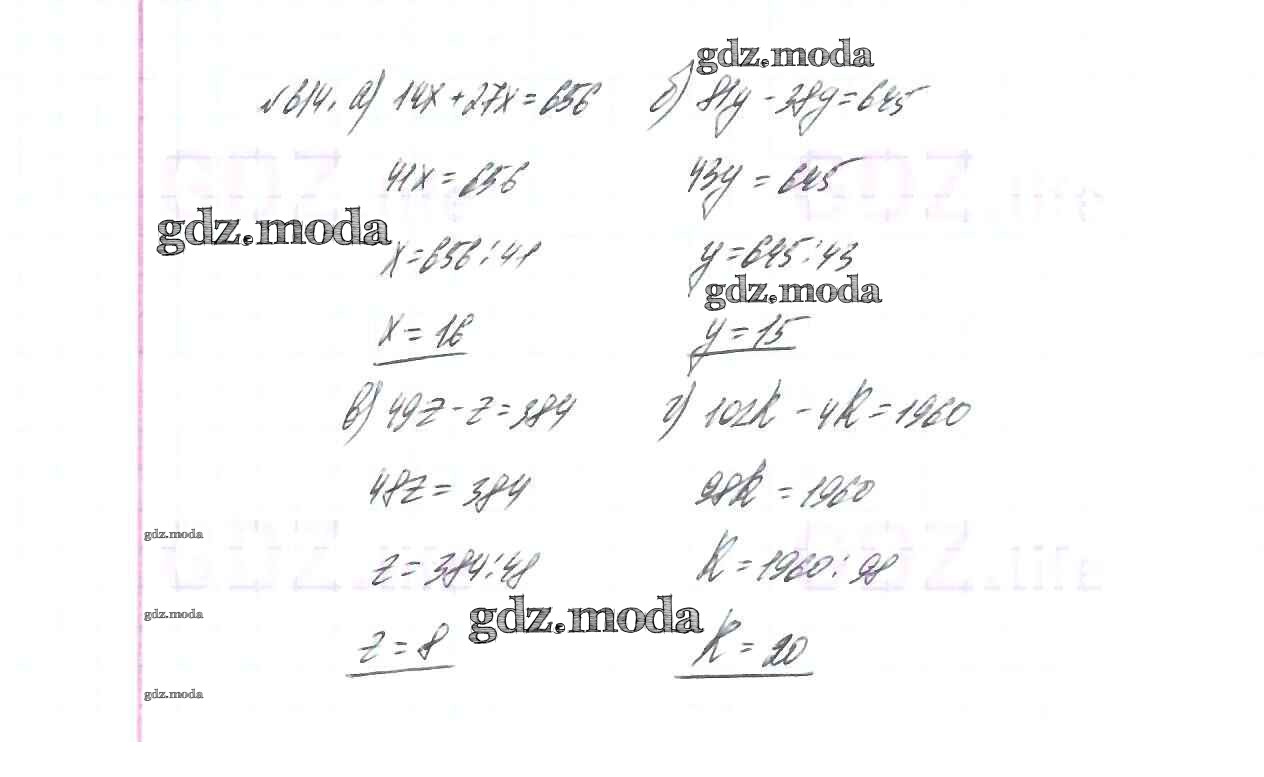 gdz.moda
№614. а) 14x + 27x = 656 б) 81y - 38y = 645
41x = 656 43y = 645
gdz.moda
x = 656 : 41 y = 645 : 43
gdz.moda
x = 16 y = 15
в) 49z - z = 384 г) 102k - 4k = 1960
48z = 384 98k = 1960
gdz.moda
z = 384 : 48 k = 1960 : 98
gdz.moda
gdz.moda
z = 8 k = 20
gdz.moda